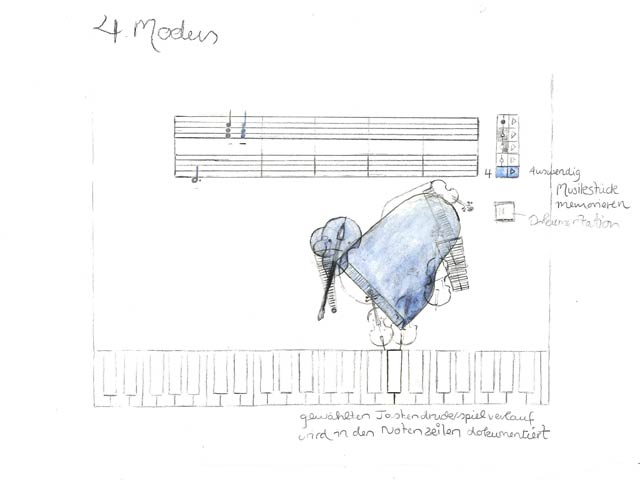 4. Modus
4
Auswendig
Musikstücke
memorieren
Dokumentation
gewählten Tastendruck/spielverlauf
wird in den Notenzeilen dokumentiert